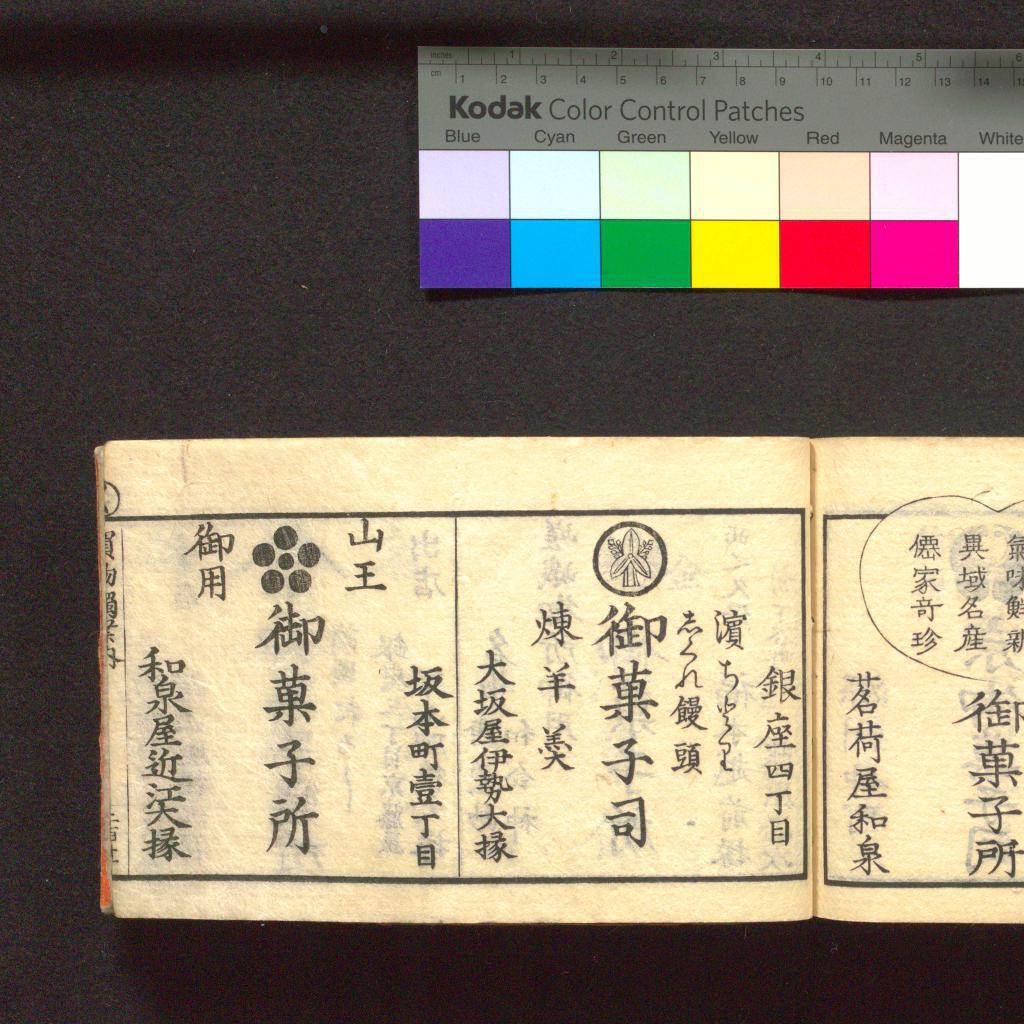 inches 1 2 3 4 5 6
cm 1 2 3 4 5 6 7 8 9 10 11 12 13 14
Kodak Color Control Patches
Blue Cyan Green Yellow Red Magenta White
異域名産
僊家竒珍
御菓子所
茗荷屋和泉
銀座四丁目
濵ちとり
志くれ饅頭
御菓子司
煉羊羮
大坂屋伊勢大掾
坂本町壹丁目
山王
御用
御菓子所
和泉屋近江大掾